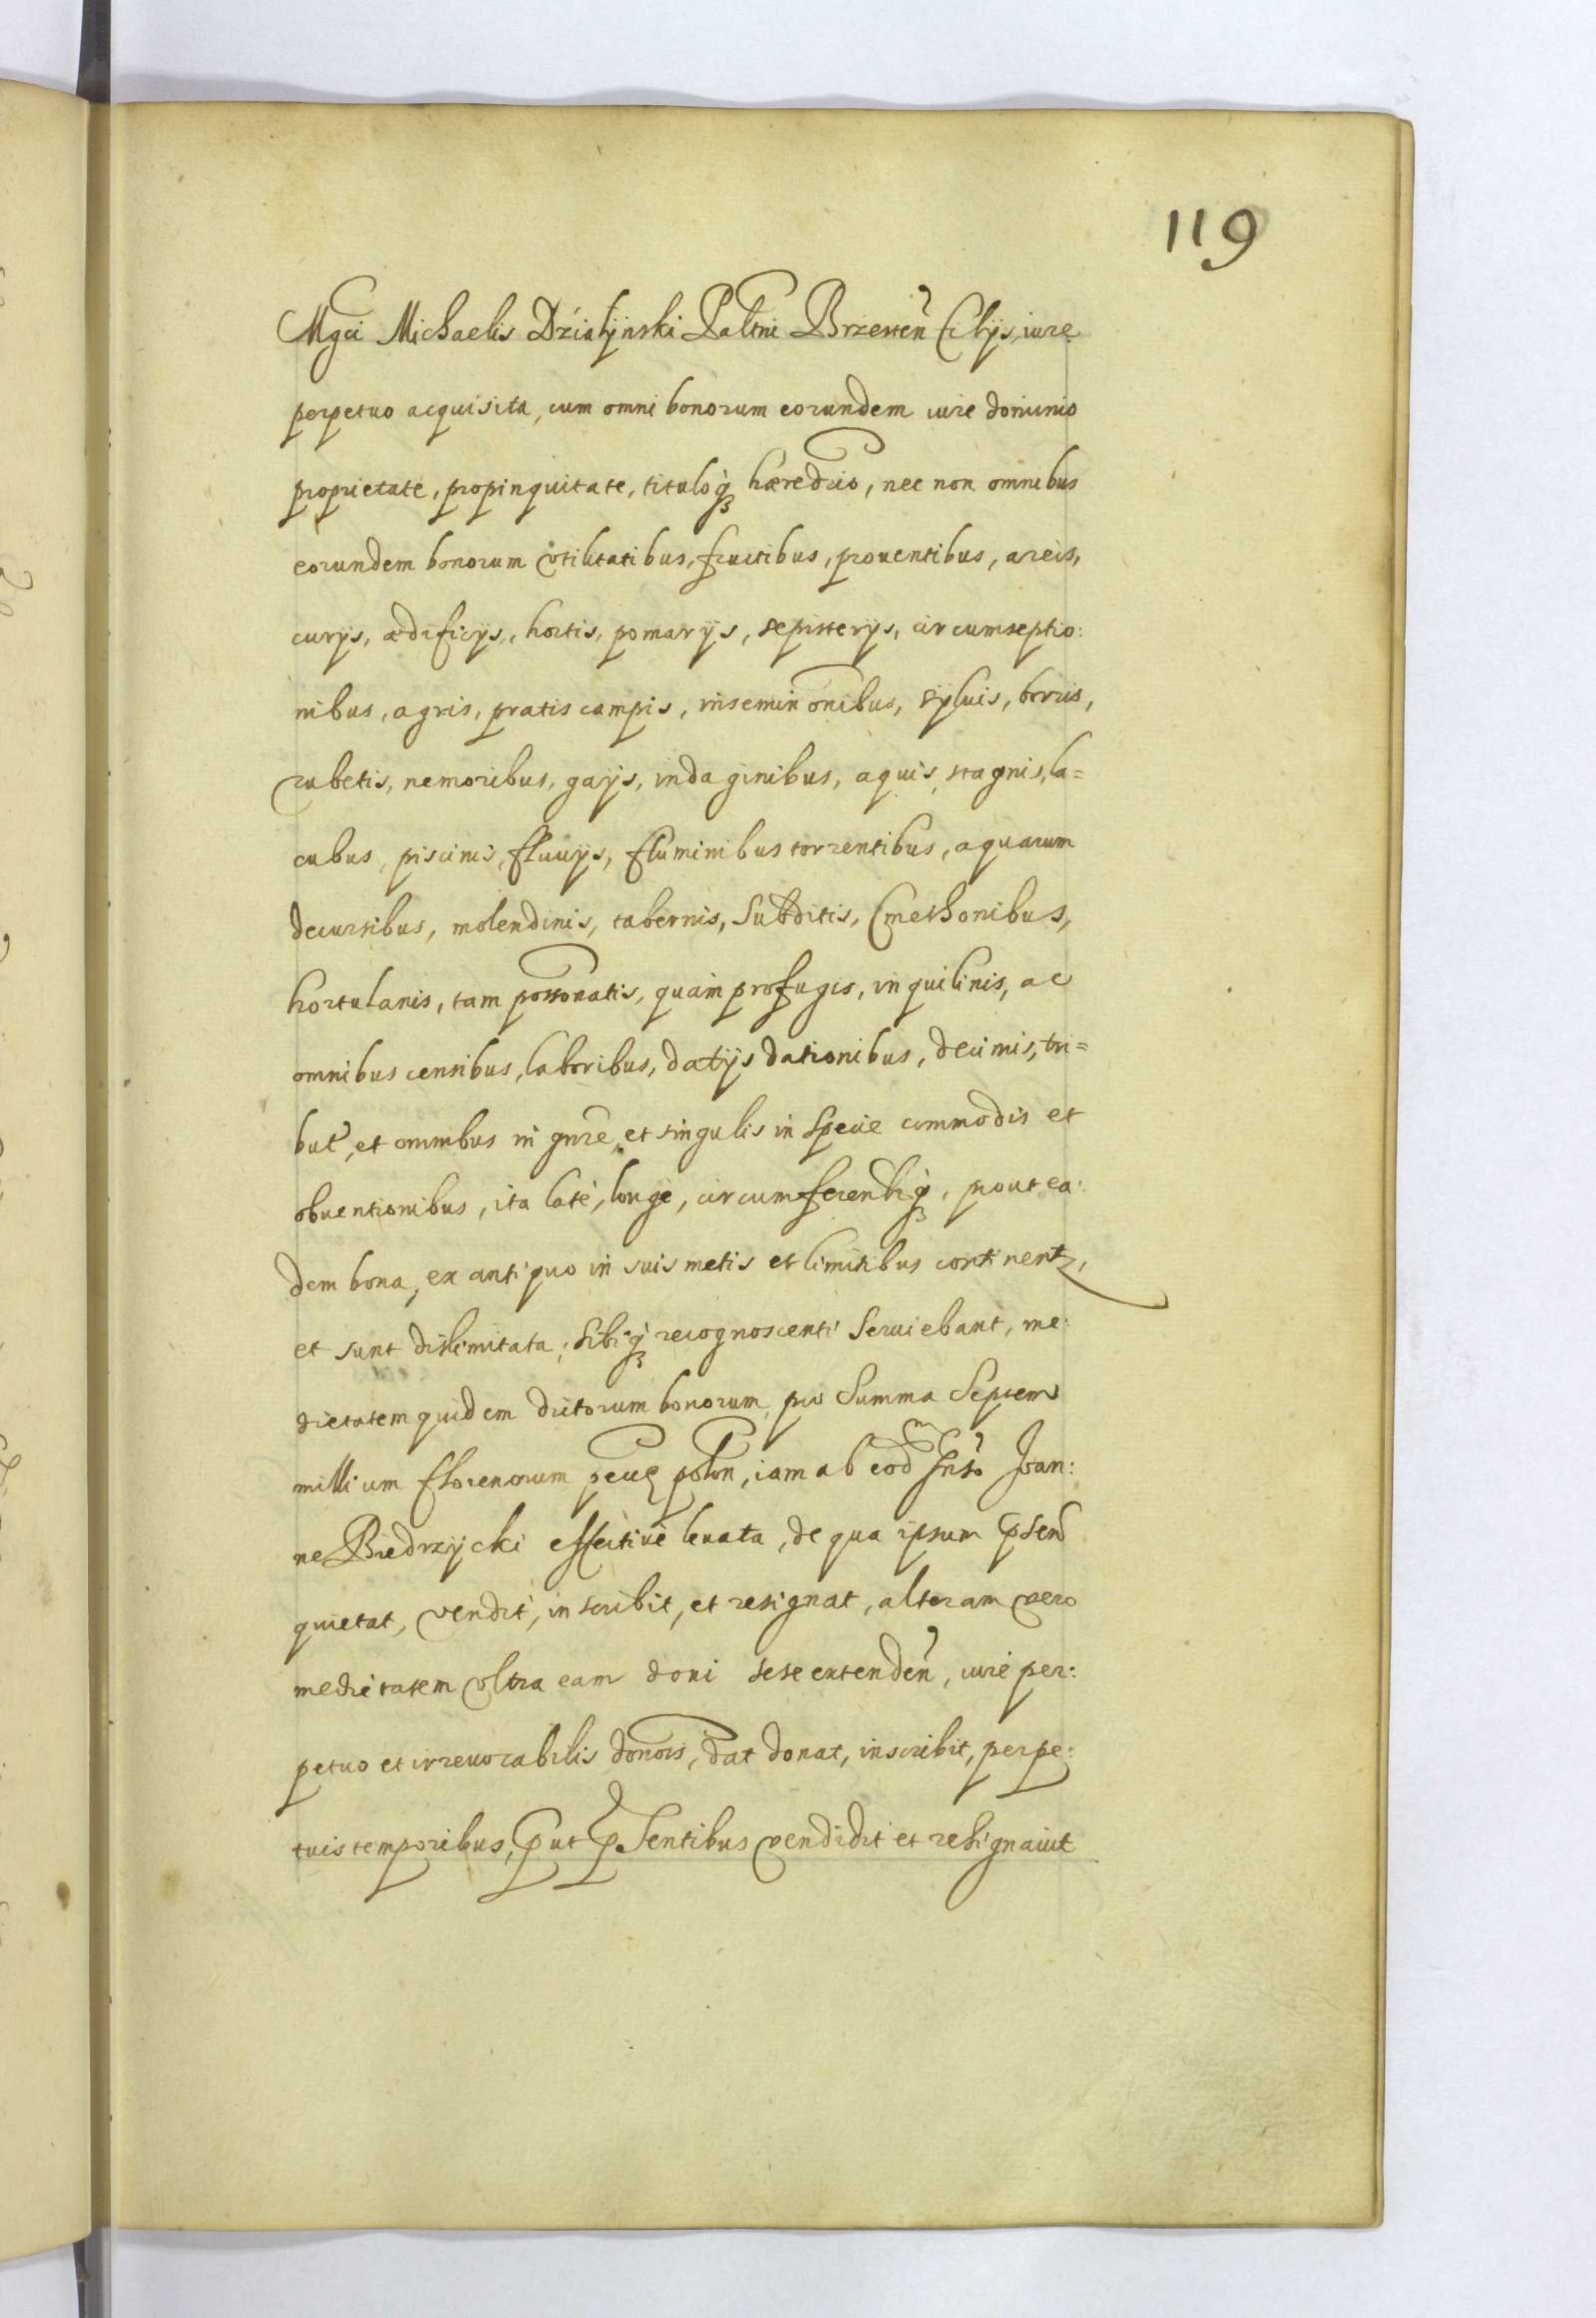 119
Mgci Michaelis Działyński Paltni Brzesten filys, iure
perpetuo acquisita, cum omni bonorum eorundem iure dominio
proprietate, propinquitate, tituloq3 hæredrio, nec non omnibus
eorundem bonorum vtilitatibus, fructibus, prouentibus, areis,
curÿs, ædificÿs, hortis, pomarÿs, sepisterÿs, circumseptio:
nibus, agris, pratis campis, inseminonibus, syluis, borris,
rubetis, nemoribus, gaÿs, indaginibus, aquis, stagnis, la=
cubus, piscinis, fluuÿs, fluminibus torrentibus, aquarum
decursibus, molendinis, tabernis, Subditis, Cmethonibus,
hortulanis, tam possonatis, quàm profugis, inquilinis, ac
omnibus censibus, laboribus, datÿs dationibus, decimis, tri=
but, et omnibus in gnre, et singulis in specie commodis et
obuentionibus, ita latè, longè, circumferentÿq3, prout ea:
dem bona, ex antiquo in suis metis et limitibus continentz,
et sunt dislimitata; sibiq3 recognoscenti seruiebant, me:
dietatem quidem dictorum bonorum, pro Summa Septem
millium florenorum pecuę polon, iam ab eodm Gnso Joan:
ne Biedrzycki effectiuè leuata, de qua ipsum psen
quietat, vendit, inscribit, et resignat, alteram vero
medietatem vltra eam doni sese extenden, iure per:
petuo et irreuocabilis donois, dat donat, inscribit, perpe:
tuis temporibus, put psentibus vendidit et resignauit